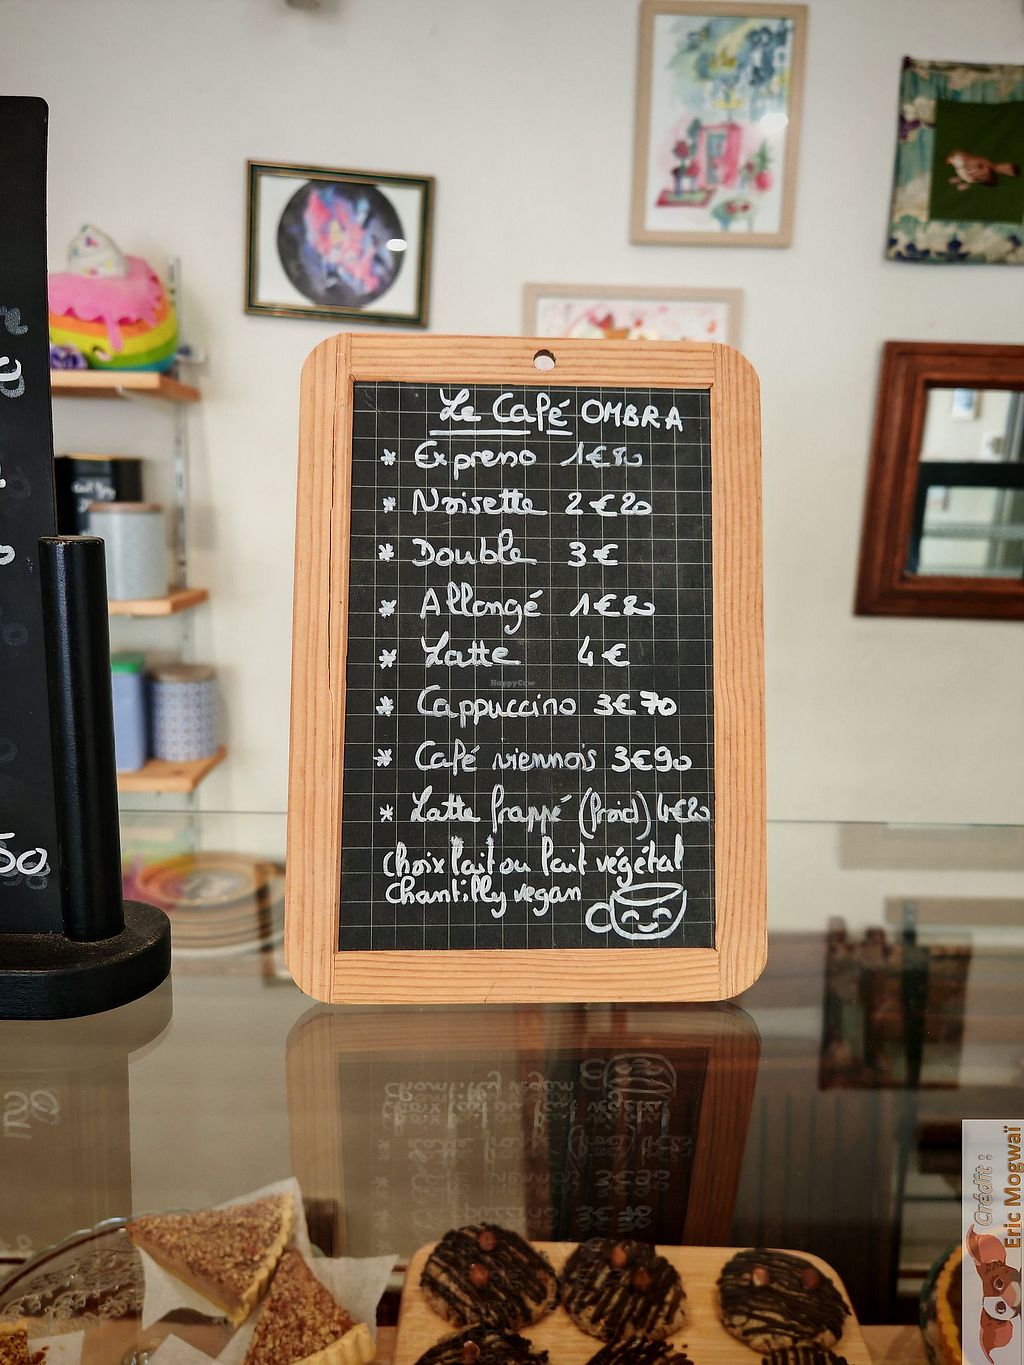 Le Café OMBRA
* Expresso 1€80
* Noisette 2€20
* Double 3€
* Allongé 1€80
* Latte 4€
* Cappuccino 3€70
* Café viennois 3€90
* Latte frappé (froid) 4€20
Choix lait ou lait végétal
Chantilly vegan
HappyCow
50
Crédit :
Eric Mogwaï